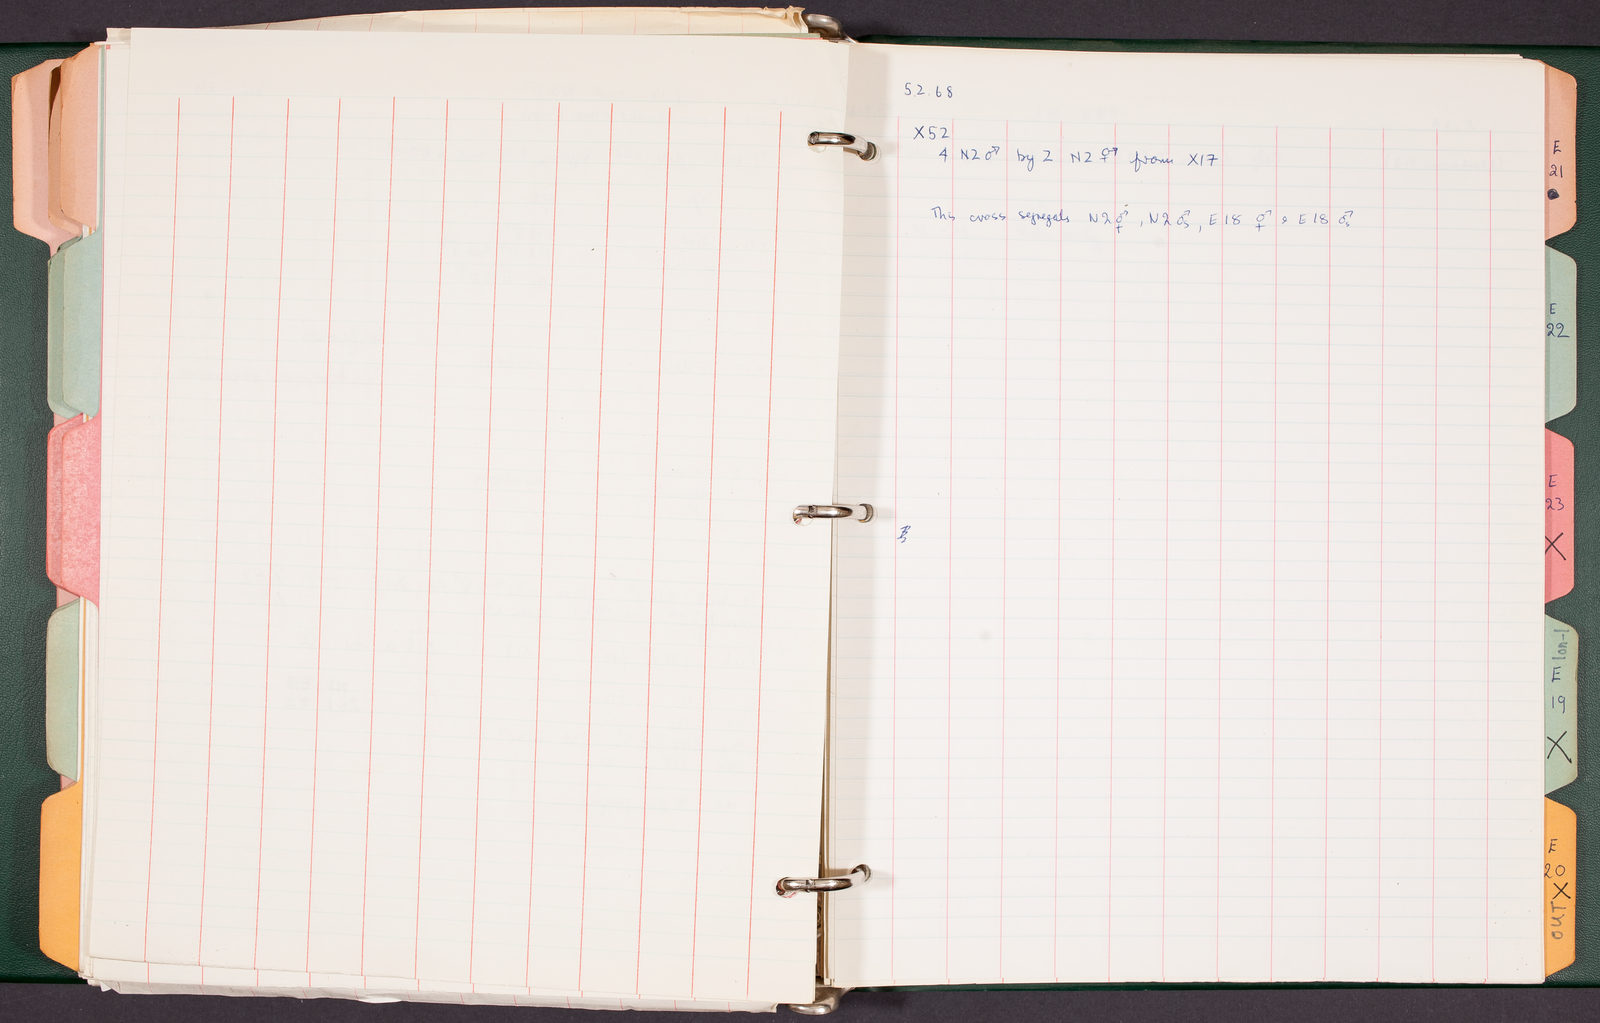 5.2.68
X52
4 N2 ♂ by 2 N2 ⚥ from X17
This cross segregates N2 ⚥, N2 ♂s, E18 ⚥ & E18 ♂s
E
21
E
22
E
23
X
lon-1
E
19
X
E
20
X
OUT